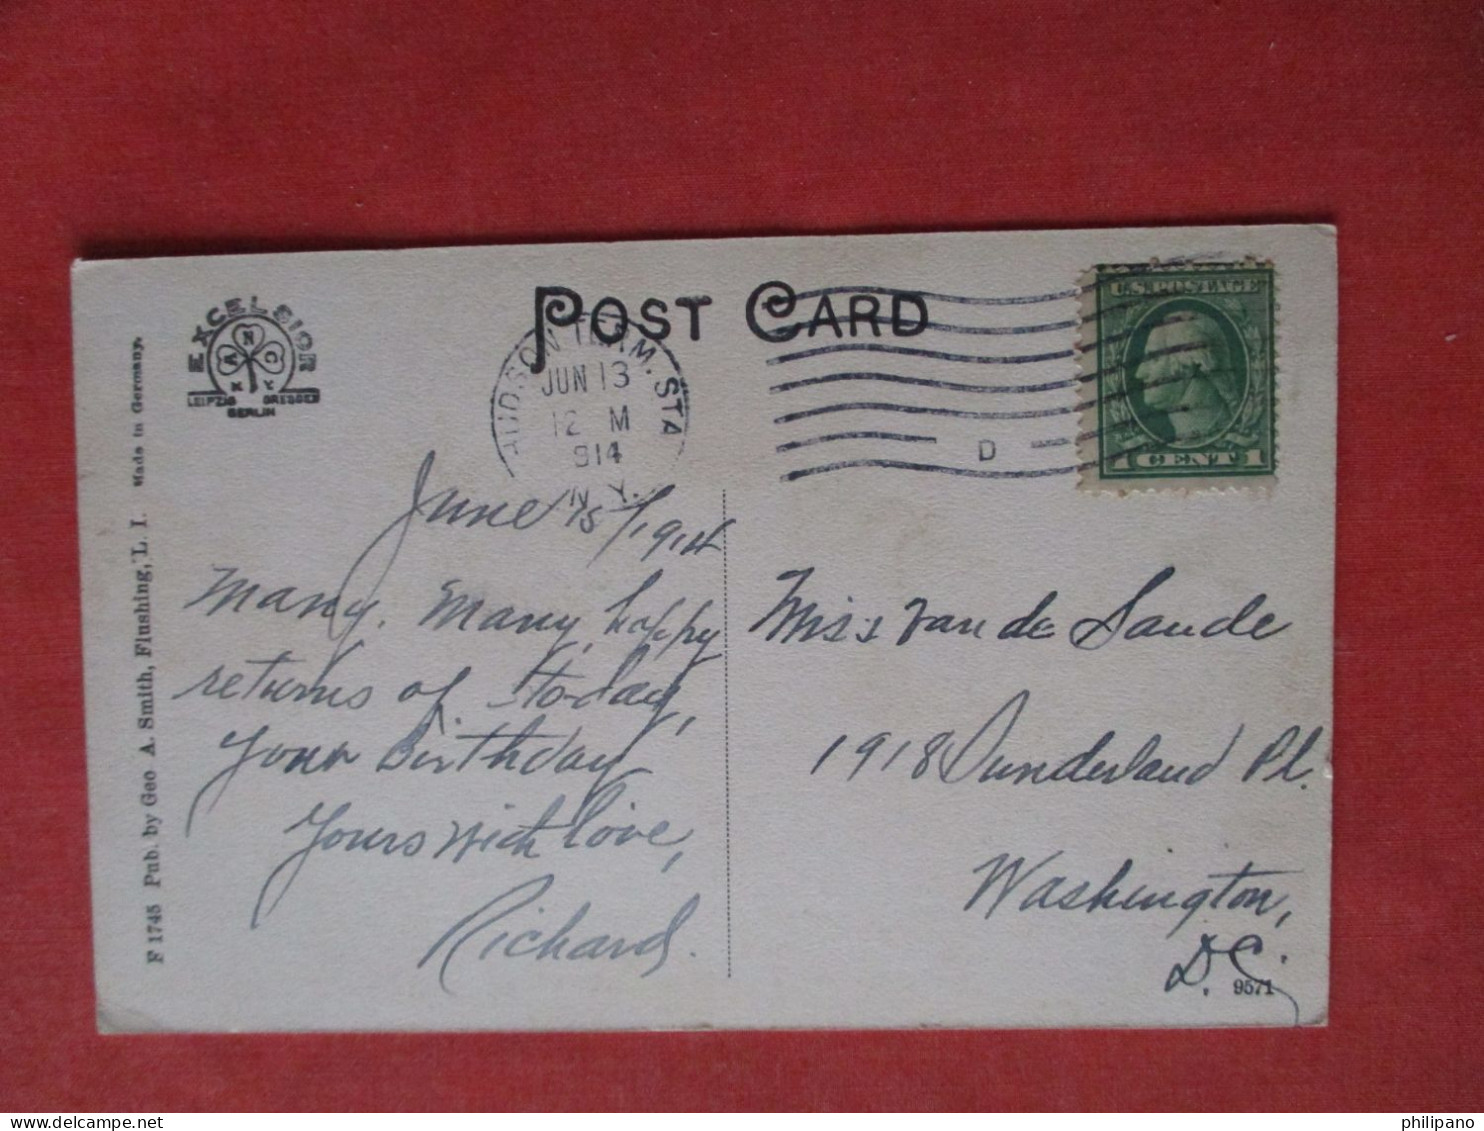 POST CARD
EXCELSIOR
A N C
K Y
LEIPZIG DRESDEN
BERLIN
HUDSON TERM. STA
JUN 13
12 M
1914
N.Y.
D
U.S. POSTAGE
1 CENT 1
June 1914
Many, Many, happy
returns of to-day,
your Birthday
Yours with love,
Richard.
Miss Van de Sande
1918 Sunderland Pl.
Washington,
D.C.
9571
F 1745 Pub. by Geo A. Smith, Flushing, L. I. Made in Germany.
philipano